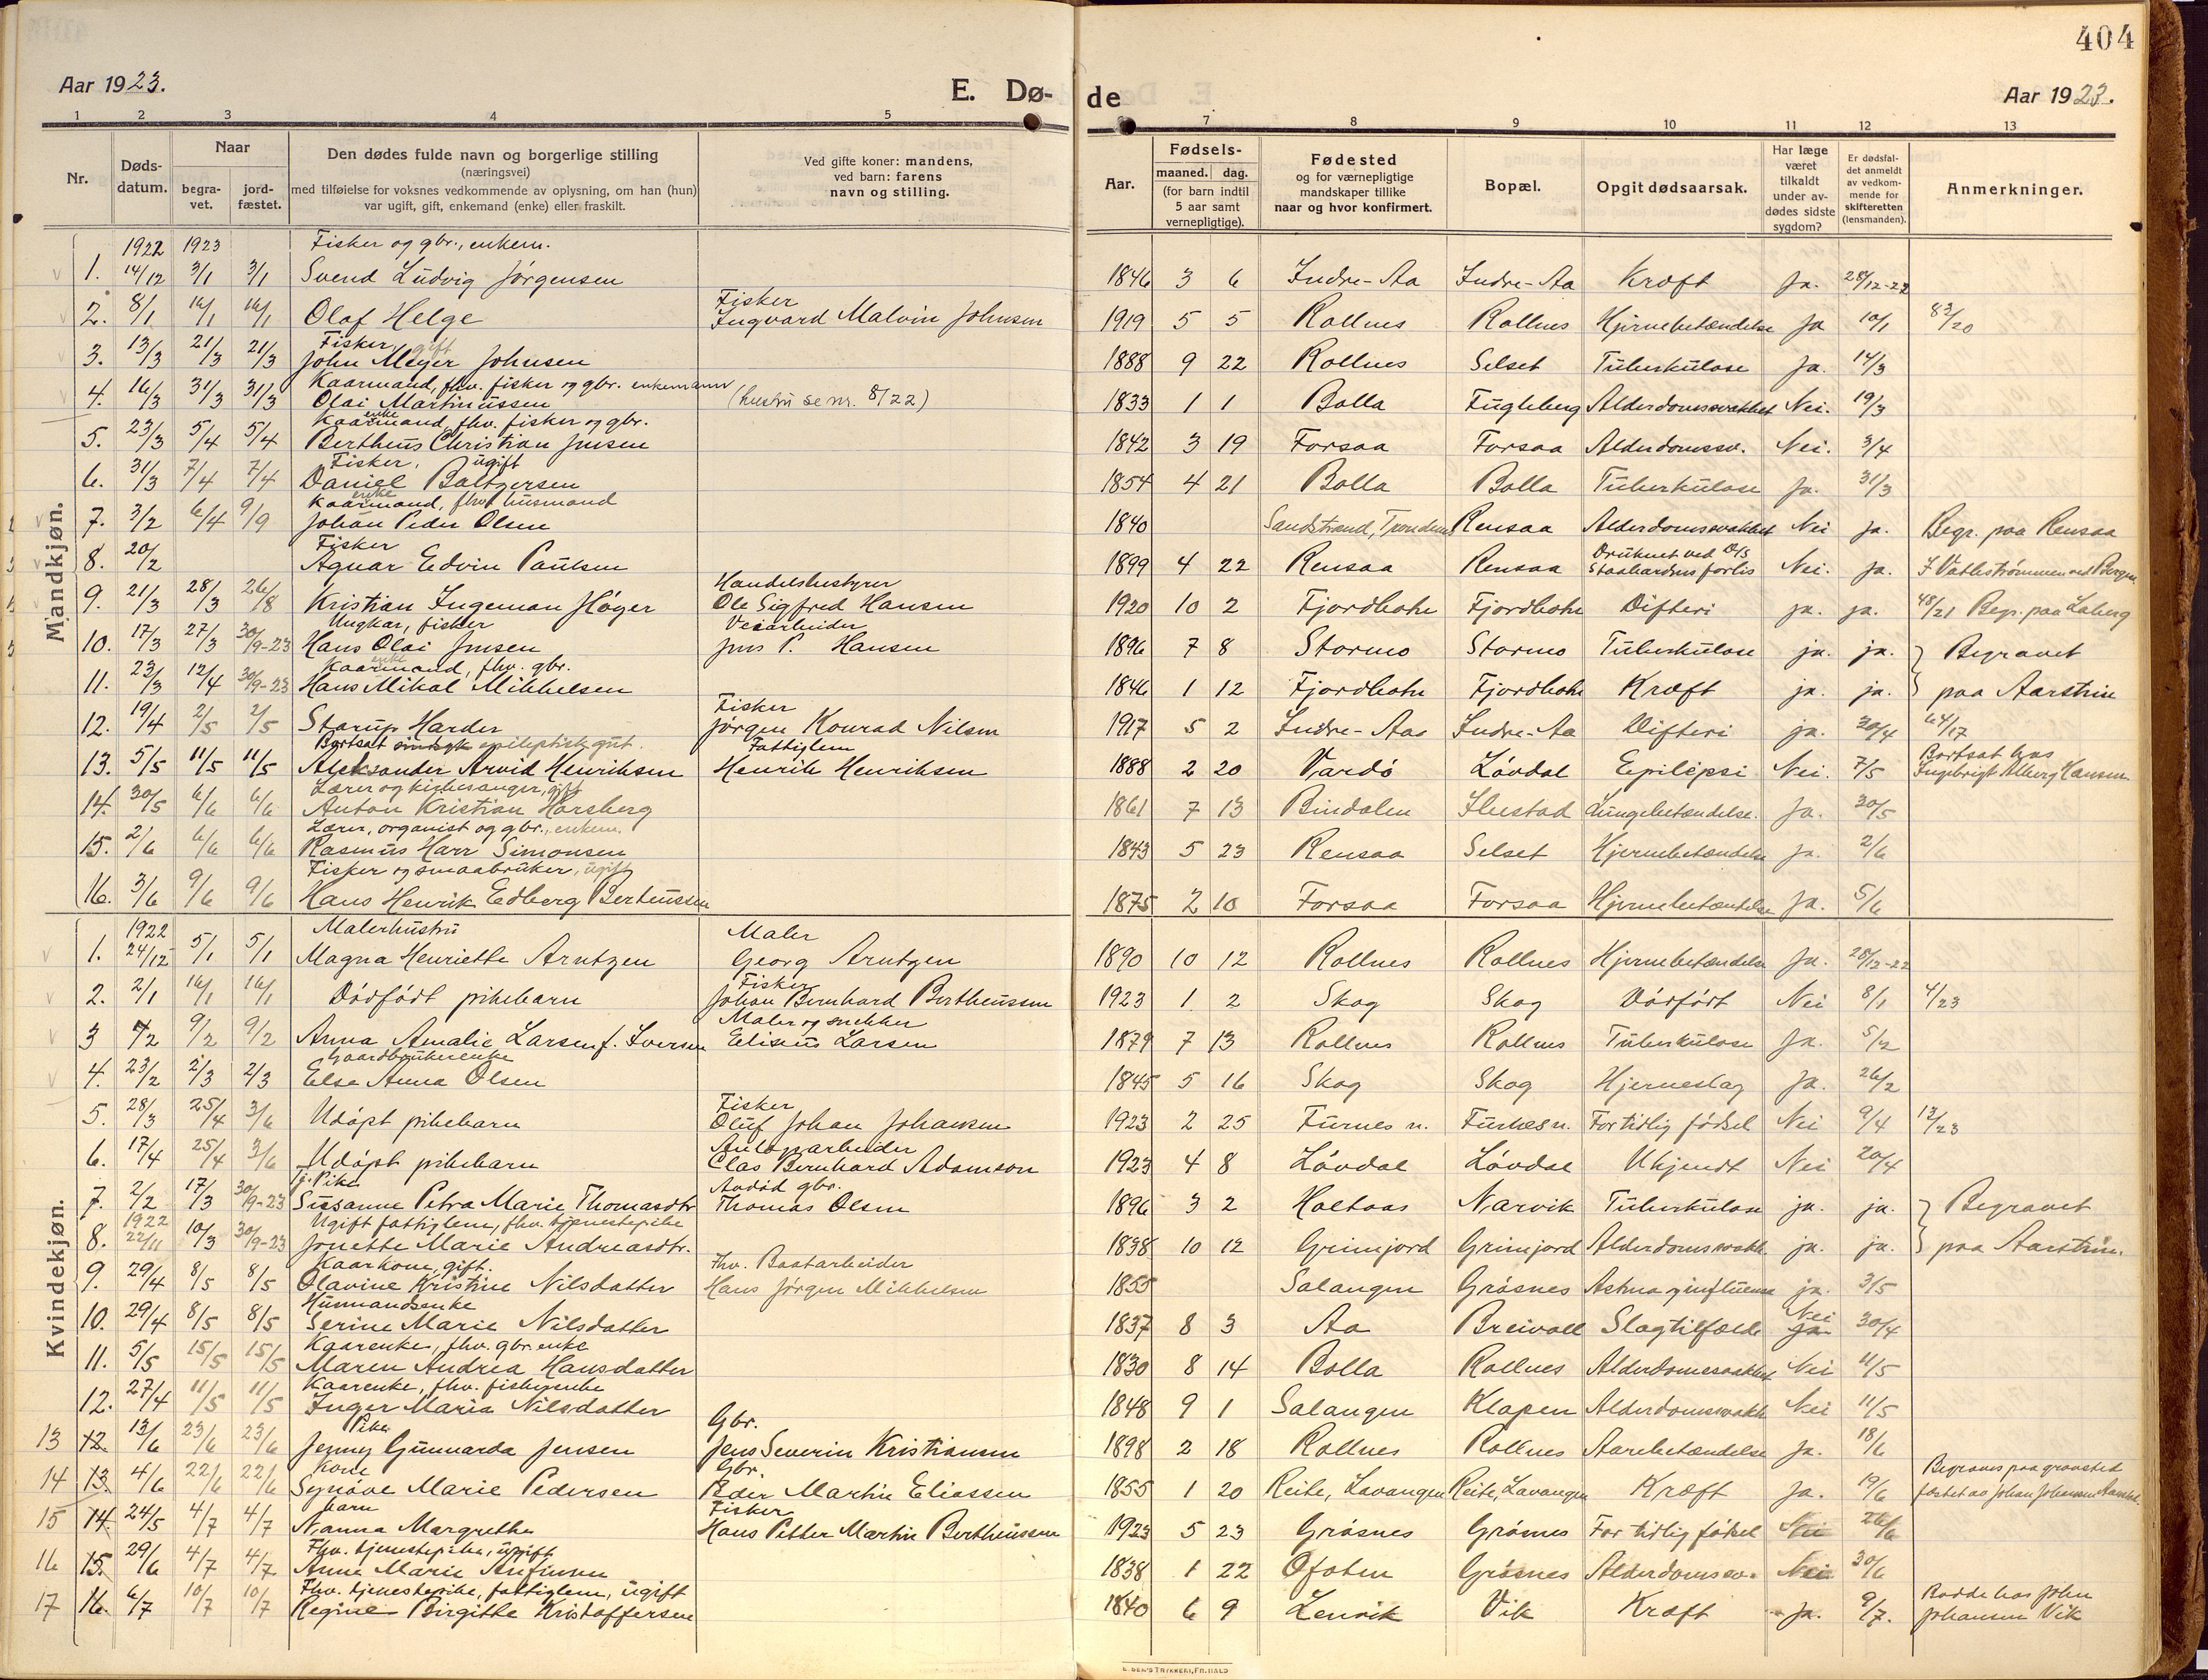 404
Aar 1923. E. Dø- de Aar 1923.
1 2 3 4 5 7 8 9 10 11 12 13
Nr. Døds-datum. Naar begra-vet. jord-fæstet. Den dødes fulde navn og borgerlige stilling (næringsvei) med tilføielse for voksnes vedkommende av oplysning, om han (hun) var ugift, gift, enkemand (enke) eller fraskilt. Ved gifte koner: mandens, ved barn: farens navn og stilling. Aar. Fødsels- maaned. dag. (for barn indtil 5 aar samt vernepligtige). Fødested og for værnepligtige mandskaper tillike naar og hvor konfirmert. Bopæl. Opgit dødsaarsak. Har læge været tilkaldt under av-dødes sidste sygdom? Er dødsfal-det anmeldt av vedkom-mende for skifteretten (lensmanden). Anmerkninger.
Mandkjøn.
1922 1923 Fisker og gbr., enkem.
1. 14/12 3/1 3/1 Svend Ludvig Jørgensen 1846 3 6 Indre-Aa Indre-Aa Kræft Ja. 28/12-22
Fisker
2. 8/1 16/1 16/1 Olaf Helge Ingvard Malvin Johnsen 1919 5 5 Rollnes Rollnes Hjernebetændelse Ja 10/1 82/20
Fisker, gift
3. 13/3 21/3 21/3 John Meyer Johnsen 1888 9 22 Rollnes Selset Tuberkulose Ja. 14/3
Kaarmand, fhv. fisker og gbr. enkemann
4. 16/3 31/3 31/3 Olai Martinussen (hustru se nr. 8/22) 1833 1 1 Bolla Fugleberg Alderdomssvakhet Nei. 19/3
Kaarmand, enke fhv. fisker og gbr.
5. 23/3 5/4 5/4 Bertheus Christian Jensen 1842 3 19 Forsaa Forsaa Alderdomssv. Nei. 3/4
Fisker, ugift
6. 31/3 7/4 7/4 Daniel Baltzersen 1854 4 21 Bolla Bolla Tuberkulose Ja. 31/3
Kaarmand, enke fhv. husmand
7. 3/2 6/4 9/9 Johan Peder Olsen 1840 Sandstrand, Trondenes Rensaa Alderdomssvakhet Nei ja. Begr. paa Rensaa
Fisker
8. 20/2 Agnar Edvin Paulsen 1899 4 22 Rensaa Rensaa Druknet ved D/S Staalhardens forlis Nei. ja. I Vatlestrømmen ved Bergen
Handelsbestyrer
9. 21/3 28/3 26/8 Kristian Ingeman Høger Ole Sigfred Hansen 1920 10 2 Fjordbotn Fjordbotn Difteri ja. ja. 48/21 Begr. paa Laberg
Ungkar, fisker Veiarbeider
10. 17/3 27/3 30/9-23 Hans Olai Jensen Jens P. Hansen 1896 7 8 Stormo Stormo Tuberkulose ja. ja. Begravet
Kaarmand, enke fhv. gbr.
11. 23/3 12/4 30/9-23 Hans Mikal Mikkelsen 1846 1 12 Fjordbotn Fjordbotn Kræft ja. ja. paa Aarstein
Fisker
12. 19/4 2/5 2/5 Starup Harder Jørgen Konrad Nilsen 1917 5 2 Indre-Aa Indre-Aa Difteri ja. 20/4 64/17
Bortsat sindsyk epileptisk gut. Fattiglem Bortsat hos
13. 5/5 11/5 11/5 Aleksander Arvid Henriksen Henrik Henriksen 1888 2 20 Vardø Løvdal Epilepsi Nei. 7/5 Ingebrigt Alberg Hansen
Lærer og kirkesanger, gift
14. 30/5 6/6 6/6 Anton Kristian Horsberg 1861 7 13 Bindalen Ilustad Lungebetændelse. Ja. 30/5
Lærer, organist og gbr., enkem.
15. 2/6 6/6 6/6 Rasmus Harr Simonsen 1843 5 23 Rensaa Selset Hjernebetændelse ja. 2/6
Fisker og smaabruker, ugift
16. 3/6 9/6 9/6 Hans Henrik Edberg Bertheussen 1875 2 10 Forsaa Forsaa Hjernebetændelse Ja. 5/6
Kvindekjøn.
1922 Malerhustru Maler
1. 24/12 5/1 5/1 Magna Henriette Arntzen Georg Arntzen 1890 10 12 Rollnes Rollnes Hjernebetændelse Ja. 28/12-22
Fisker
2. 2/1 16/1 16/1 Dødfødt pikebarn Johan Bernhard Bertheussen 1923 1 2 Skog Skog Dødfødt Nei 8/1 4/23
Maler og snekker
3 4/2 9/2 9/2 Anna Amalie Larsen f. Iversen Eliseus Larsen 1879 7 13 Rollnes Rollnes Tuberkulose Ja. 5/2
Gaardbrukerenke
4. 23/2 2/3 2/3 Else Anna Olsen 1845 5 16 Skog Skog Hjerneslag Ja. 26/2
Fisker
5. 28/3 25/4 3/6 Udøpt pikebarn Oluf Johan Johansen 1923 2 25 Furnes n. Furnes n. For tidlig fødsel Nei 9/4 13/23
Anlægsarbeider
6. 17/4 25/4 3/6 Udøpt pikebarn Clas Bernhard Adamson 1923 4 8 Løvdal Løvdal Ukjendt Nei 20/4
Pike Avdød gbr.
7. 2/2 17/3 30/9-23 Susanne Petra Marie Thomasdtr Thomas Olsen 1896 3 2 Holtaas Narvik Tuberkulose ja. ja. Begravet
1922 Ugift fattiglem, fhv. tjenestepike
8. 22/11 10/3 30/9-23 Jonette Marie Andreasdtr. 1838 10 12 Grimjord Grimjord Alderdomssvakh. ja. ja. paa Aarstein.
Kaarkone, gift. Fhv. Baatarbeider
9. 29/4 8/5 8/5 Olavine Kristine Nilsdatter Hans Jørgen Mikkelsen 1855 Salangen Grøsnes Astma og influensa ja. 3/5
Husmandsenke Nei
10. 29/4 8/5 8/5 Serine Marie Nilsdatter 1837 8 3 Aa Breivoll Slagtilfælde Ja 30/4
Kaarenke, fhv. gbr. enke
11. 5/5 15/5 15/5 Maren Andrea Hansdatter 1830 8 14 Bolla Rollnes Alderdomssvakhet Nei 11/5
Kaarenke, fhv. fiskerenke
12. 27/4 11/5 11/5 Inger Maria Nilsdatter 1848 9 1 Salangen Klapen Alderdomssvakh Nei 11/5
Pike Gbr.
13 12. 13/6 23/6 23/6 Jenny Gunvarda Jensen Jens Severin Kristiansen 1898 2 18 Rollnes Rollnes Aarebetændelse Ja. 18/6
Kone Gbr. Begraves paa gravsted
14 13. 4/6 22/6 22/6 Synøve Marie Pedersen Peder Martin Eliassen 1855 1 20 Reite, Lavangen Reite, Lavangen Kræft Ja. 19/6 fæstet av Johan Johansen
barn Fisker
15 14. 24/5 4/7 4/7 Nanna Margrethe Hans Petter Martin Bertheussen 1923 5 23 Grøsnes Grøsnes For tidlig fødsel Nei 26/6
Fhv. tjenestepike, ugift
16 15. 29/6 4/7 4/7 Anne Marie Arnfinsen 1838 1 22 Ofoten Grøsnes Alderdomssv. Nei 30/6
Fhv. tjenestepike, fattiglem, ugift Bodde hos John
17 16. 6/7 10/7 10/7 Regine Birgitte Kristoffersen 1840 6 9 Lenvik Vik Kræft Ja. 9/7. Johansen Vik